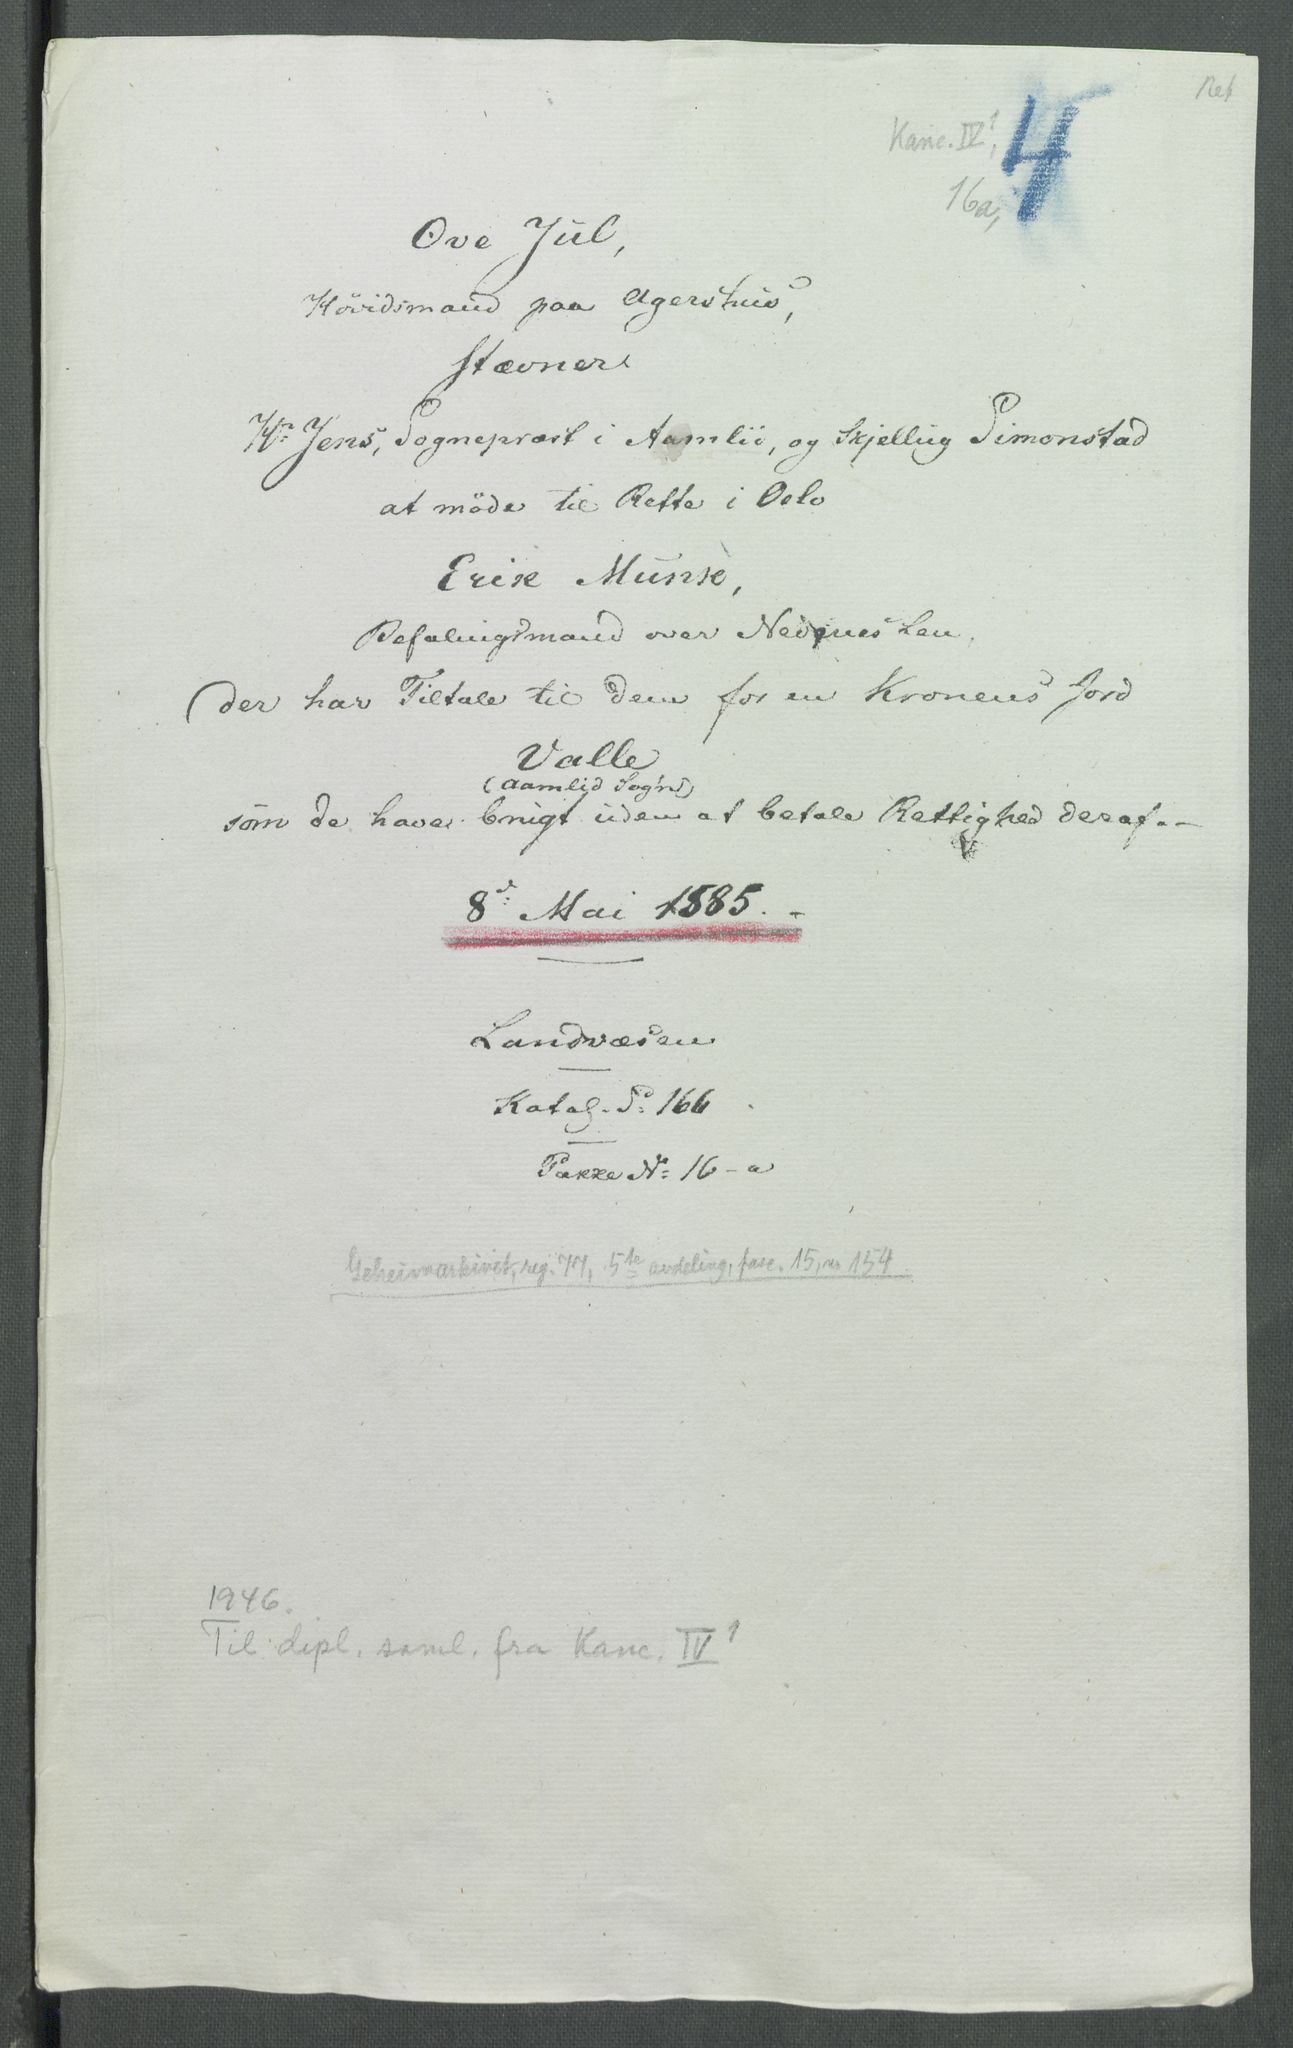 Ret
Kanc. IV¹,
4
16a,
Ove Jül,
Hövidsmand paa Agershüs,
stævner
Hr Jens, Sognepræst i Aamlii, og Skjellüg Simonstad
at möde til Rette i Oslo
Erik Münk,
Befalingsmand over Nedenes Len,
der har Tiltale til dem for en Kronens Jord
Valle
(Aamlid Sogn)
som de have brugt üden at betale Rettighed deraf.-
8d Mai 1585.-
Landvæsen
Katal. S: 166
Pakke No: 16-a
Geheimearkivet, reg. 77, 5te avdeling, fasc. 15, nr 154
1946.
Til dipl. saml. fra Kanc. IV¹